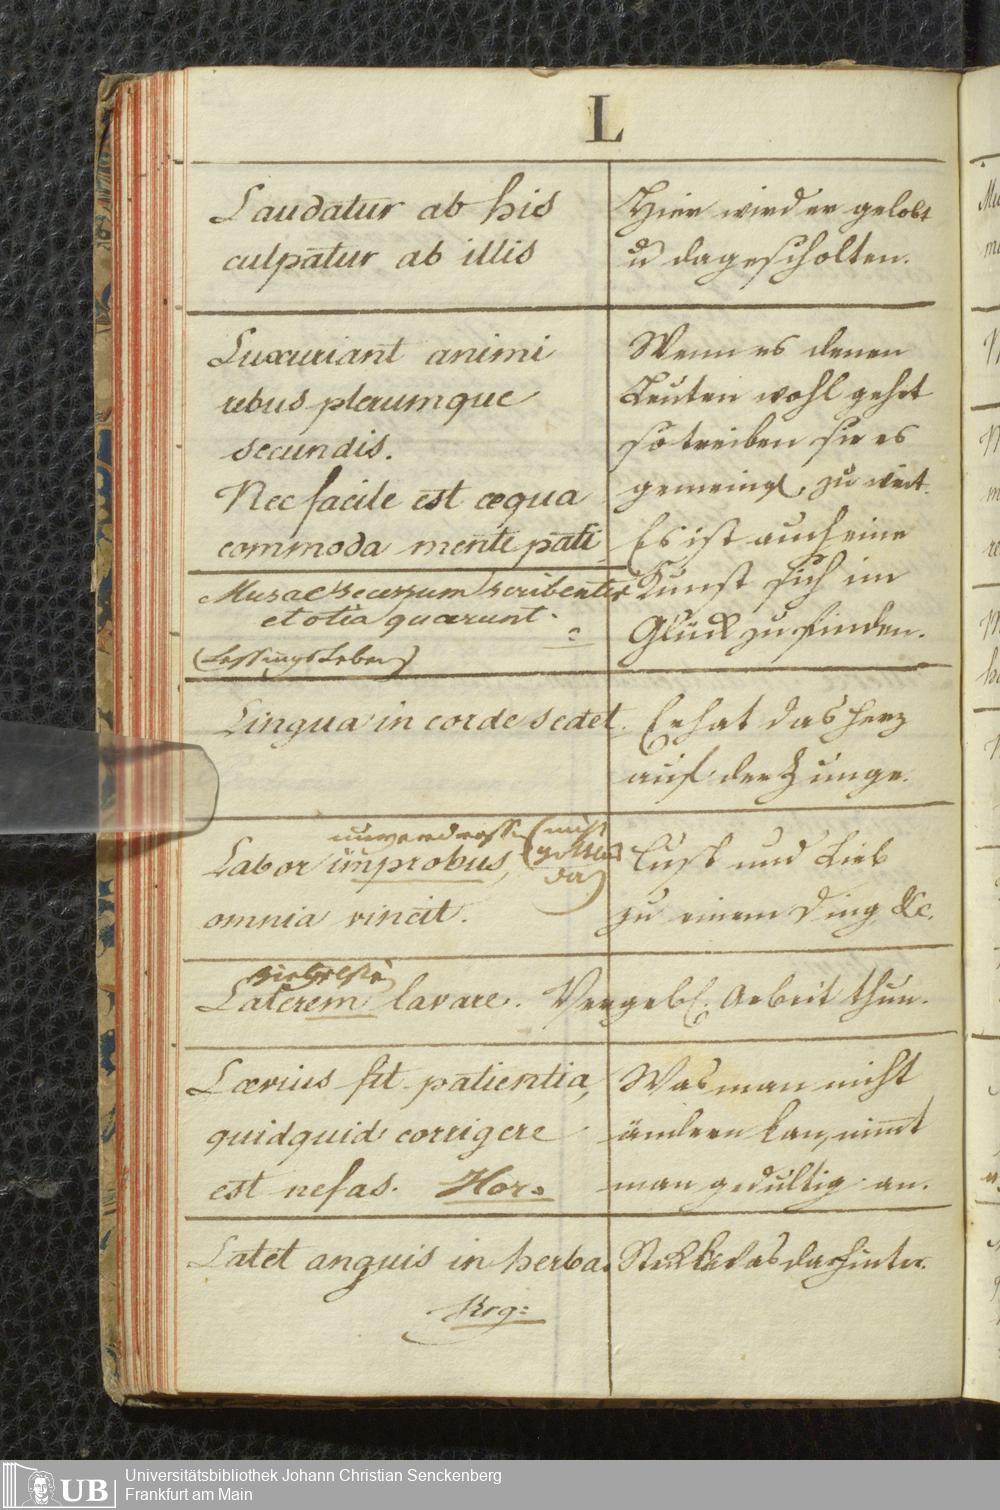 L
Laudatur ab his
culpatur ab illis
Hier wird er gelobt
u dagescholten.
Luxuriant animi
rebus plerumque
secundis.
Nec facile est æqua
commoda mente pati
Wenn es denen
Leuten wohl geht
so treiben sie es
gemeingl. zu weit.
Es ist auch eine
Kunst sich im
Glück zu finden.
Musae secessum scribentis
et otia quærunt.
(Lessings Leben)
Lingua in corde sedet.
Er hat das Herz
auf der Zunge.
unverdrossen (nicht
gottlos
da)
Labor improbus,
omnia vincit.
Lust und Lieb
zu einem Ding &c.
Ziegelstein
Laterem lavare. Vergebl. Arbeit thun.
Lævius fit patientia,
quidquid corrigere
est nefas. Hor.
Was man nicht
ändern kan, nimt
man gedultig an.
Latet anguis in herba.
Steckt was darhinter.
Universitätsbibliothek Johann Christian Senckenberg
Frankfurt am Main
UB